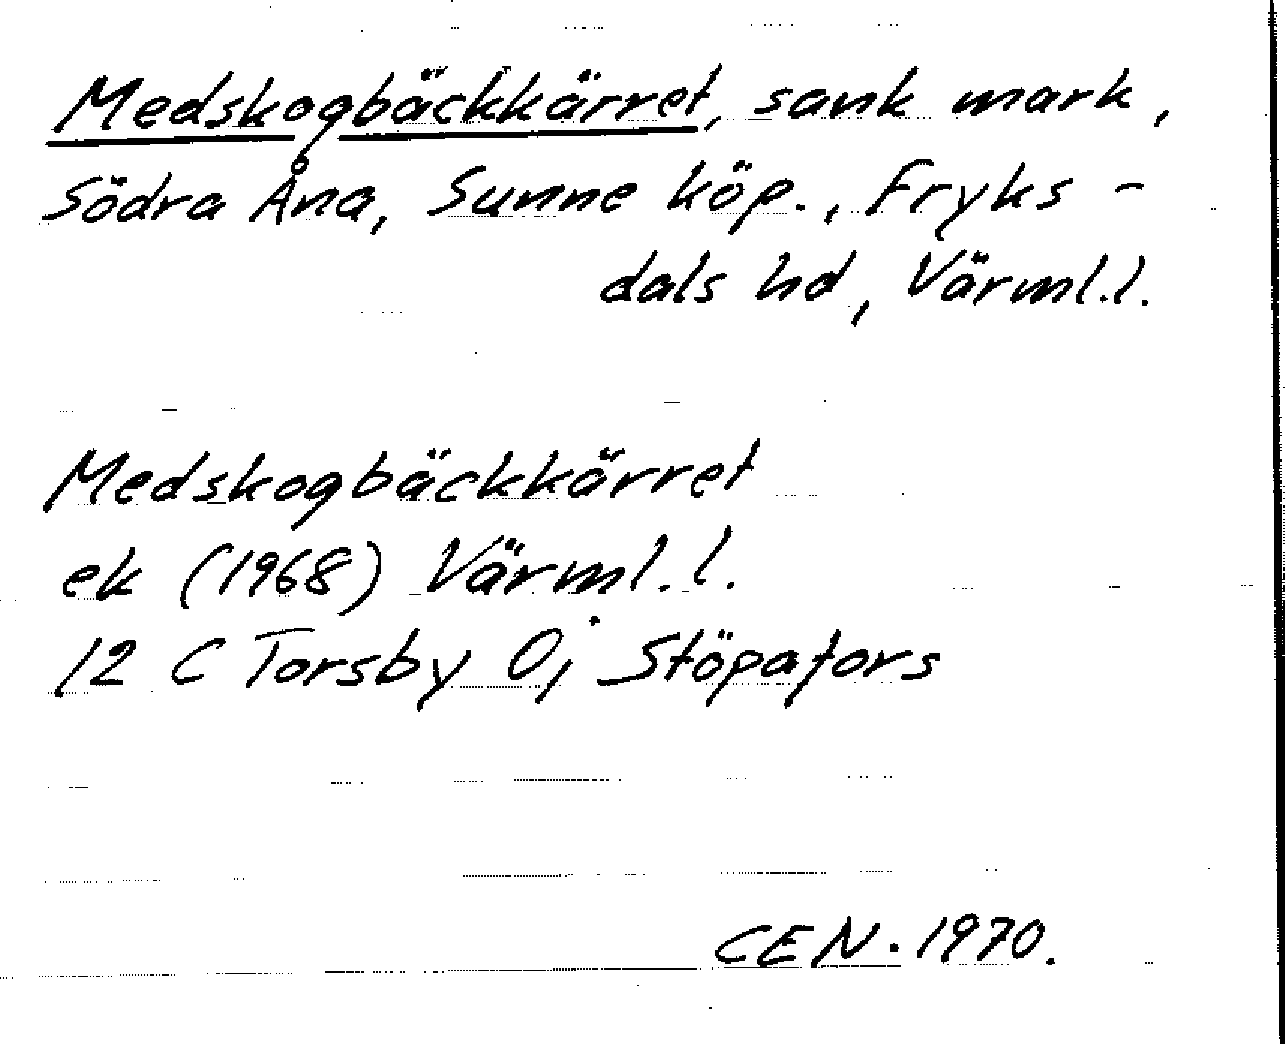 Medskogbäckkärret, sank mark,
Södra Åna, Sunne köp., Fryks-
dals hd, Värml.l.
Medskogbäckkärret
ek (1968) Värml.l.
12 C Torsby 0j Stöpafors
CEN. 1970.